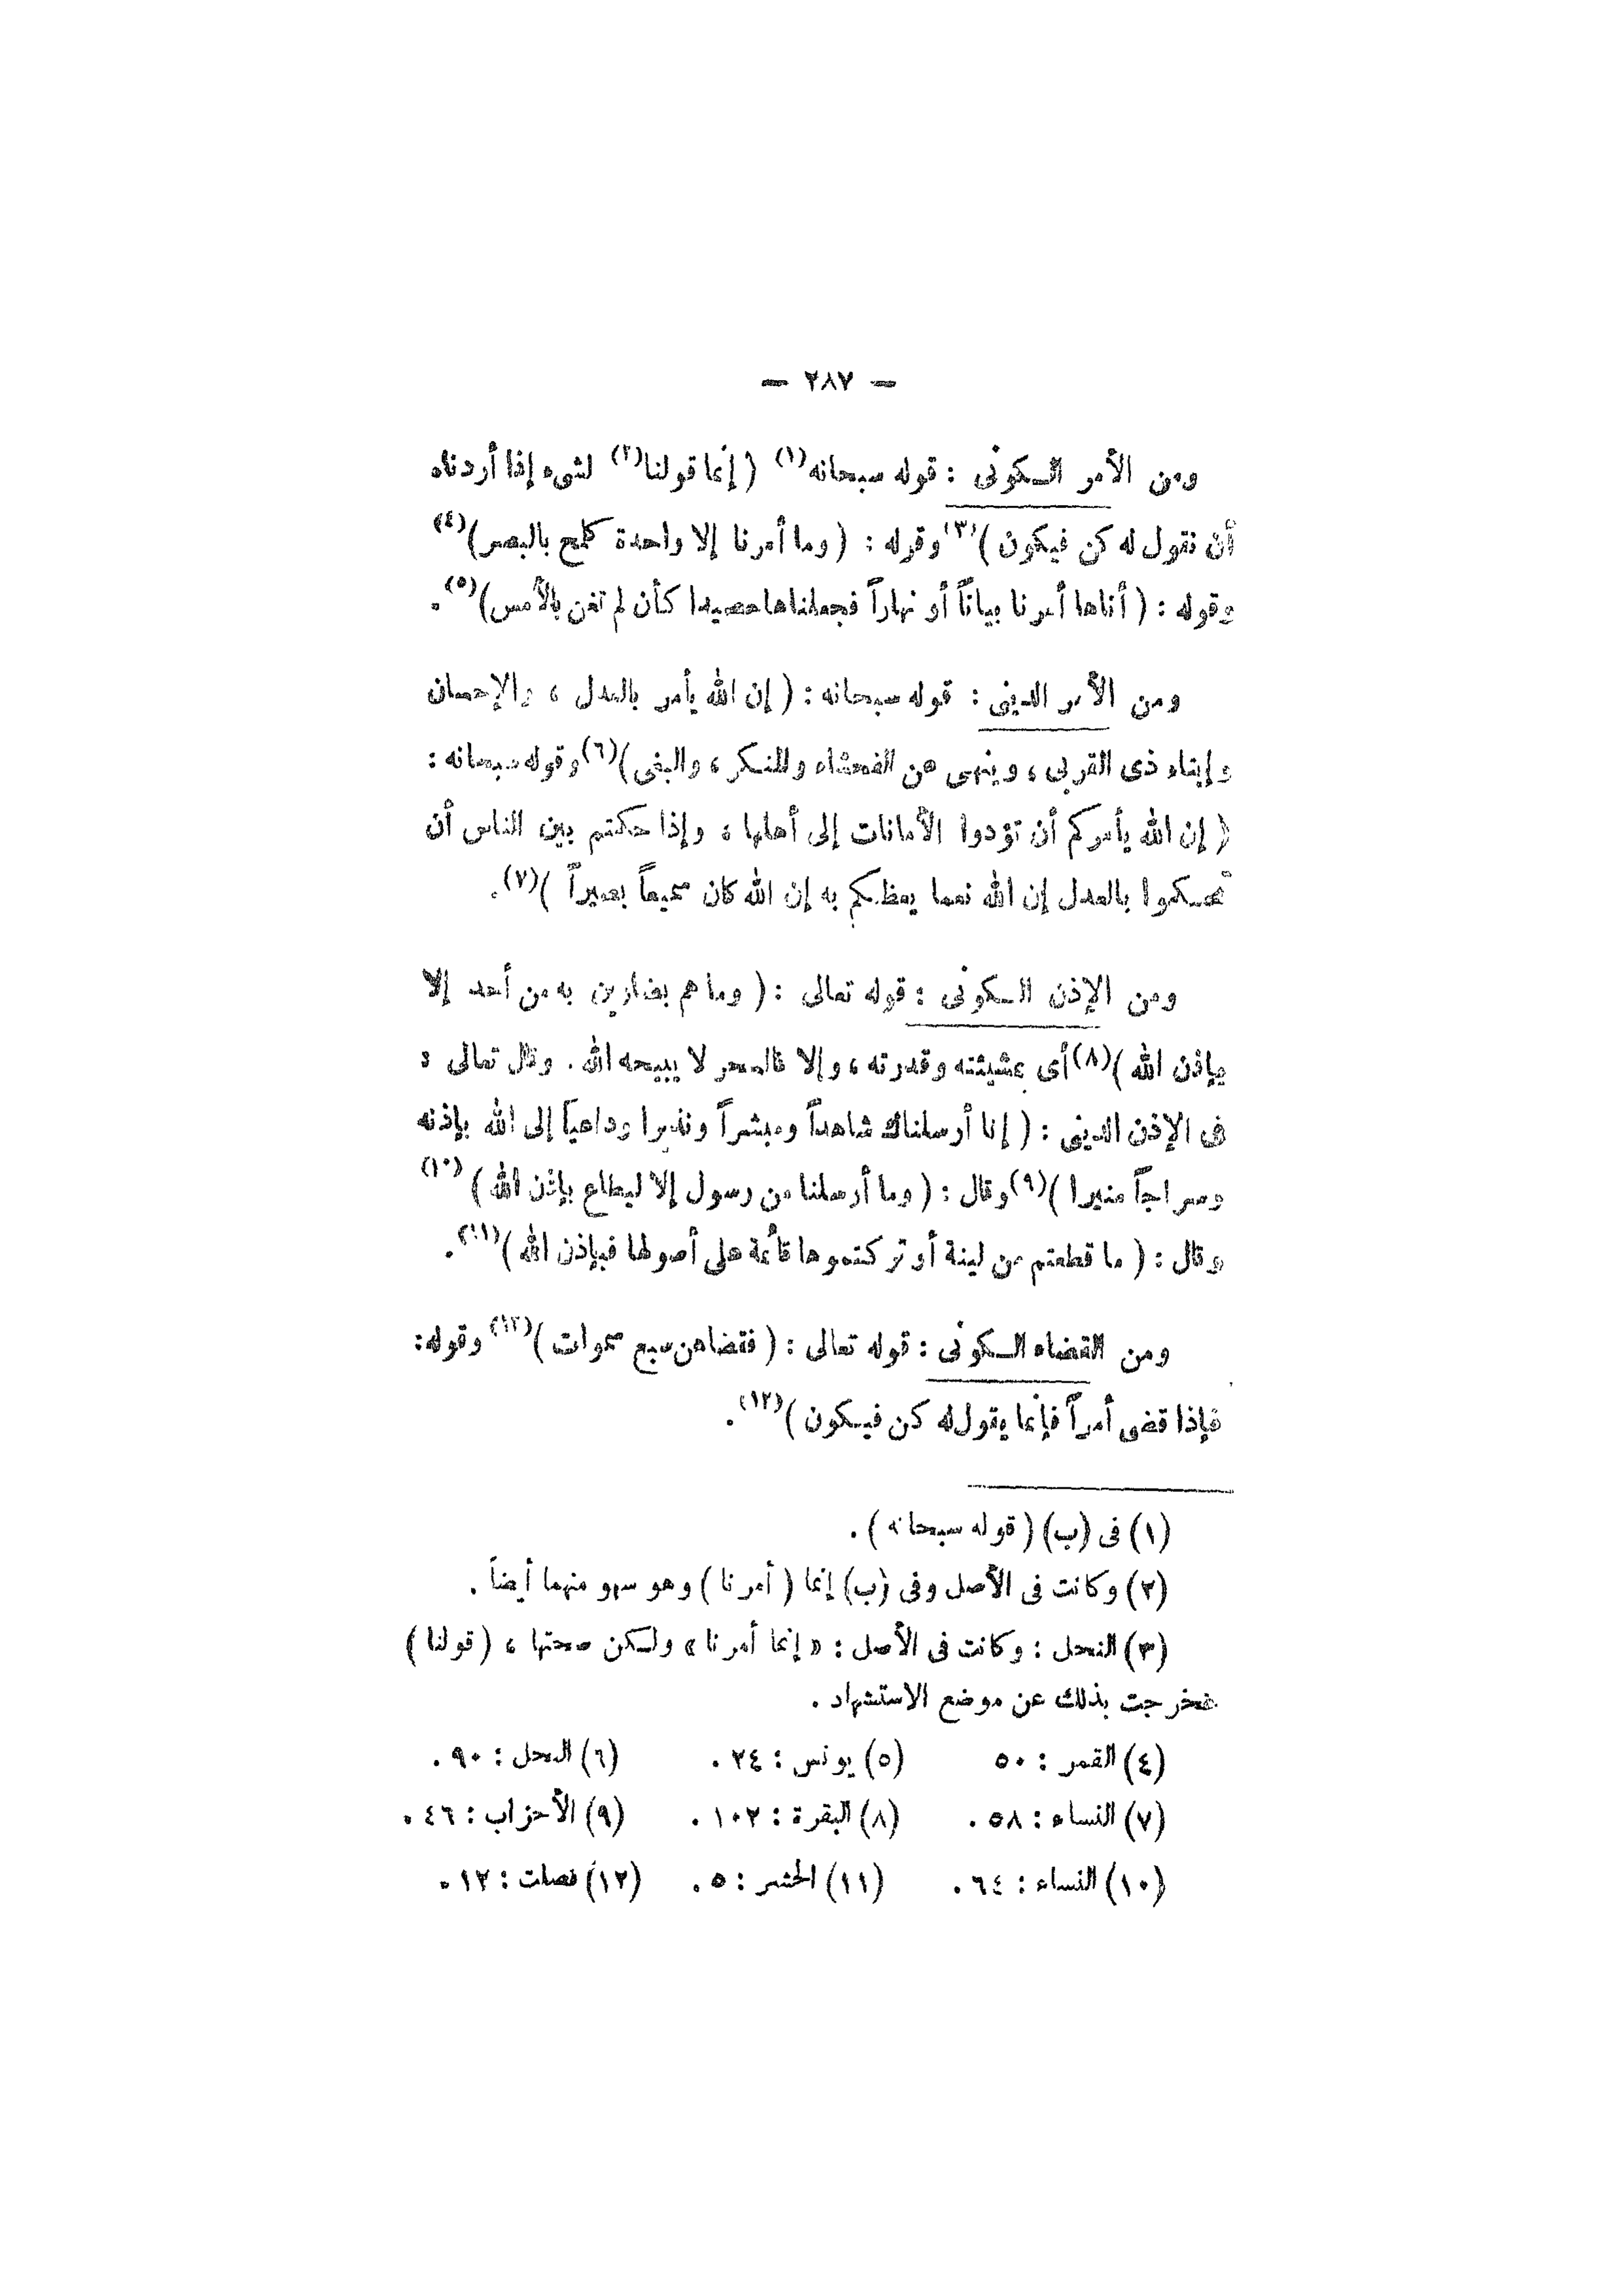 — ٢٨٧ —
ومن الأمر الكونى : قوله سبحانه(١) ( إنما قولنا(٢) لشىء إذا أردناه
أن نقول له كن فيكون )(٣) وقوله : ( وما أمرنا إلا واحدة كلمح بالبصر)(٤)
وقوله : ( أتاها أمرنا بياتاً أو نهاراً فجعلناها حصيدا كأن لم تغن بالأمس)(٥) .
ومن الأمر الدينى : قوله سبحانه : ( إن الله يأمر بالعدل ، والإحسان
وإيتاء ذى القربى ، وينهى عن الفحشاء والمنكر ، والبغى )(٦) وقوله سبحانه :
( إن الله يأمركم أن تؤدوا الأمانات إلى أهلها ، وإذا حكمتم بين الناس أن
تحكموا بالعدل إن الله نعما يعظكم به إن الله كان سميعاً بصيراً )(٧) .
ومن الإذن الكونى : قوله تعالى : ( وما هم بضارين به من أحد إلا
بإذن الله )(٨) أى بمشيئته وقدرته ، وإلا فالسحر لا يبيحه الله . وقال تعالى :
فى الإذن الدينى : ( إنا أرسلناك شاهداً ومبشراً ونذيرا وداعياً إلى الله بإذنه
وسراجاً منيرا )(٩) وقال : ( وما أرسلنا من رسول إلا ليطاع بإذن الله )(١٠)
وقال : ( ما قطعتم من لينة أو تركتموها قائمة على أصولها فبإذن الله )(١١) .
ومن القضاء الكونى : قوله تعالى : ( فقضاهن سبع سموات )(١٢) وقوله :
فإذا قضى أمراً فإنما يقول له كن فيكون )(١٢) .
(١) فى (ب) ( قوله سبحانه ) .
(٢) وكانت فى الأصل وفى (ب) إنما ( أمرنا ) وهو سهو منهما أيضاً .
(٣) النحل : وكانت فى الأصل : « إنما أمرنا » ولكن صحتها ، ( قولنا )
فخرجت بذلك عن موضع الاستشهاد .
(٤) القمر : ٥٠ (٥) يونس : ٢٤ . (٦) النحل : ٩٠ .
(٧) النساء : ٥٨ . (٨) البقرة : ١٠٢ . (٩) الأحزاب : ٤٦ .
(١٠) النساء : ٦٤ . (١١) الحشر : ٥ . (١٢) فصلت : ١٢ .